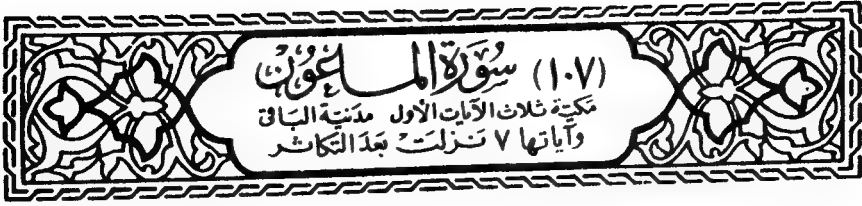 (١٠٧) سُورَة الماعُون
مَكيّة ثلاث الآيات الأول مَدنيّة البَاقى
وآياتها ٧ نَزلتْ بَعدَ التكاثر